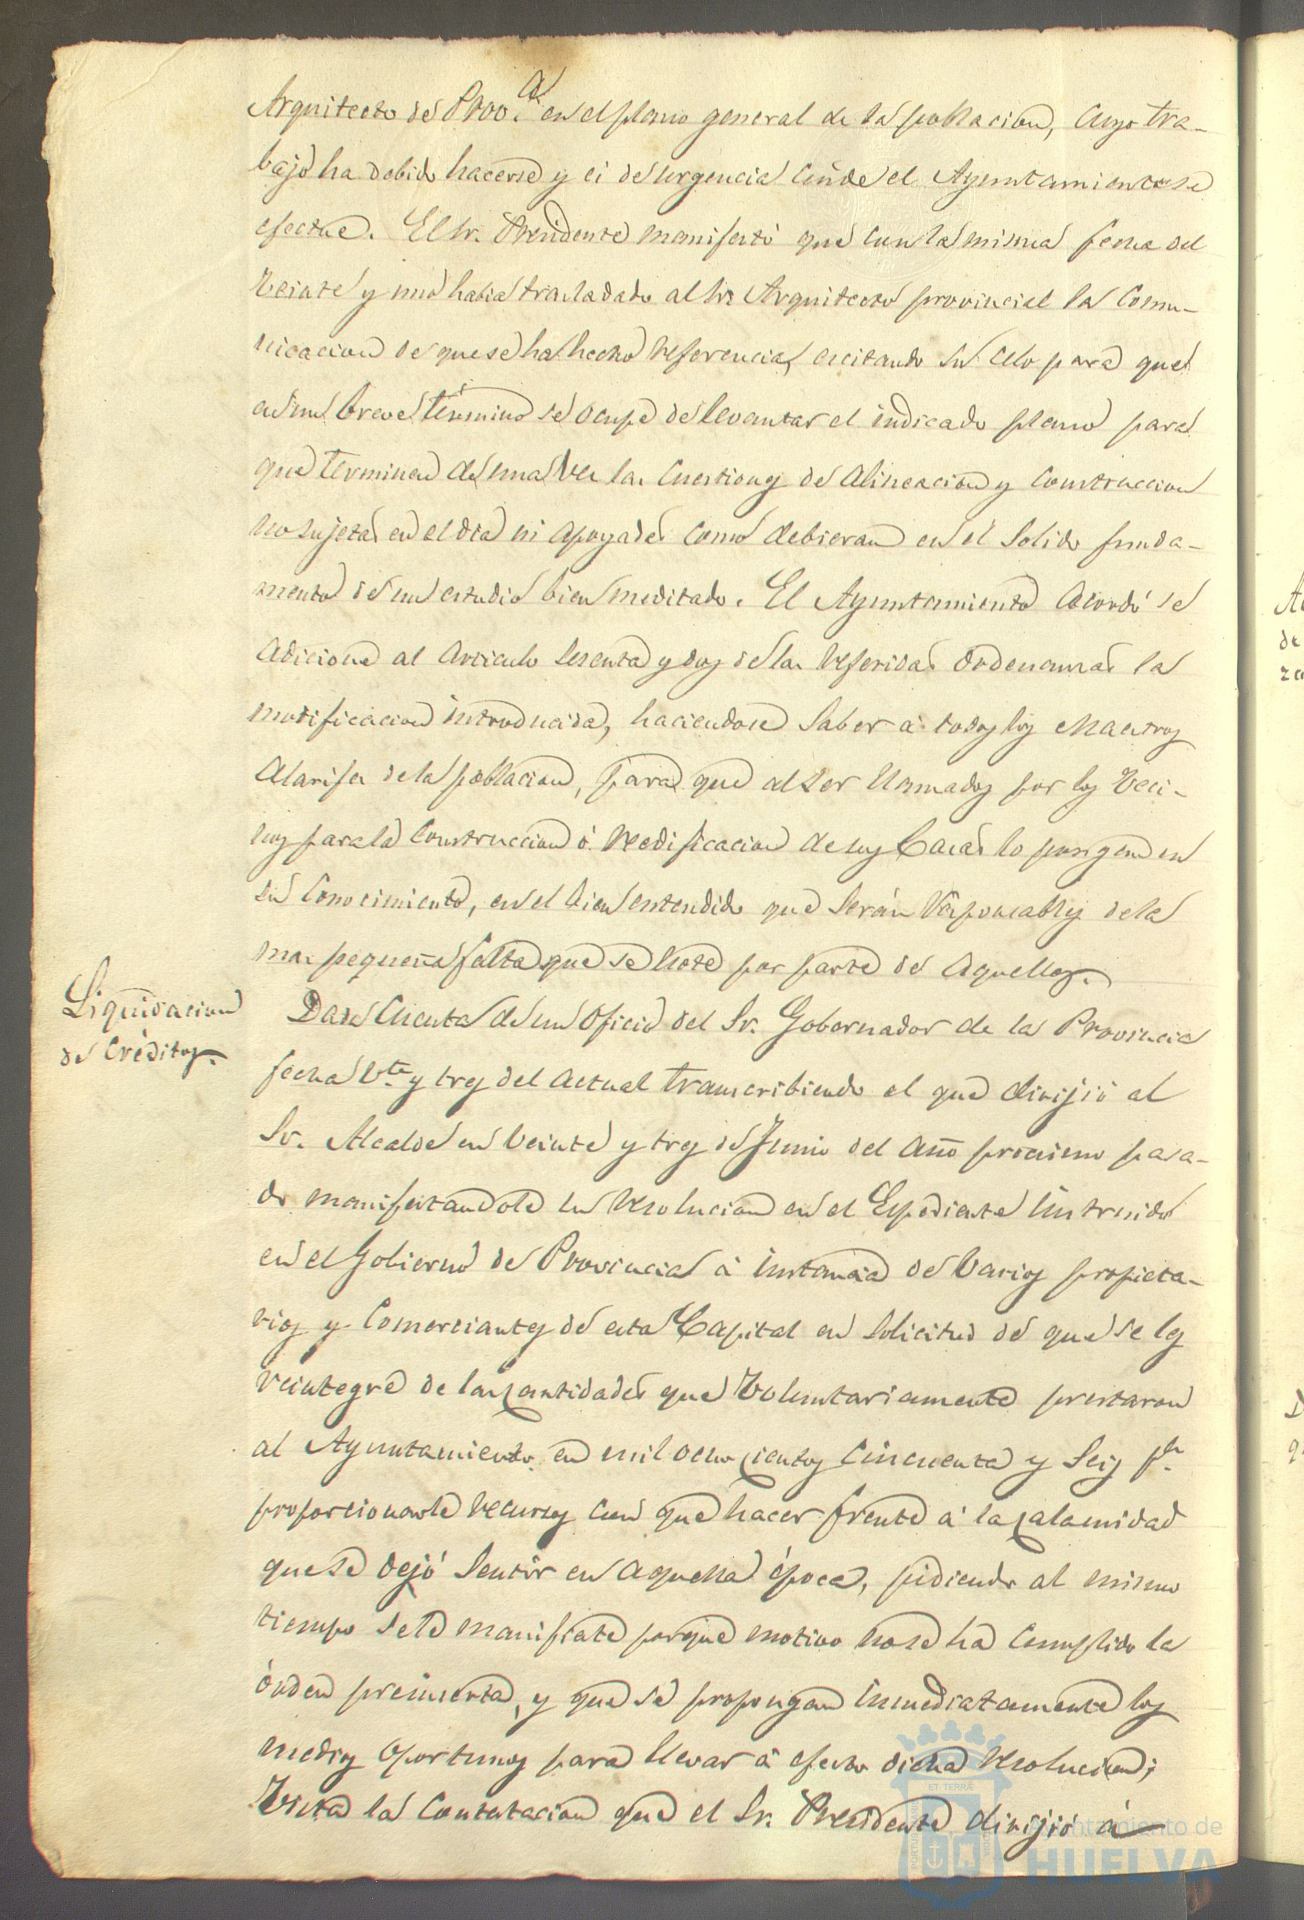 Arquitecto de Prov.ª en el plano general de la poblacion, cuyo tra-
bajo ha debido hacerse y ci de urgencia cuide el Ayuntamiento se
efectue. El Sr. Presidente manifestó que con la misma fecha del
veinte y uno habia trasladado al Sr. Arquitecto provincial la comu-
nicacion de que se ha hecho referencia, ecsitando su celo para que
en un breve término se ocupe de levantar el indicado plano para
que terminen de una vez las cuestiones de alineacion y construccion
no sujetas en el dia ni apoyadas como debieran en el solido funda-
mento de un estudio bien meditado. El Ayuntamiento acordó se
adicione al articulo sesenta y dos de las referidas ordenanzas la
modificacion introducida, haciendose saber á todos los Maestros
Alarifes de la poblacion, para que al ser llamados por los veci-
nos para la construccion ó reedificacion de sus Casas lo pongan en
su conocimiento, en el bien entendido que serán responsables de la
mas pequeña falta que se note por parte de aquellos.
Liquidacion
de Créditos.
Dada cuenta de un oficio del Sr. Gobernador de la Provincia
fecha vte. y tres del actual transcribiendo el que dirijió al
Sr. Alcalde en veinte y tres de Junio del año procsimo pasa-
do manifestandole su resolucion en el Espediente instruido
en el Gobierno de Provincia á instancia de varios propieta-
rios y comerciantes de esta Capital en solicitud de que se les
reintegre de las cantidades que voluntariamente prestaron
al Ayuntamiento en mil ochocientos cincuenta y seis pa.
proporcionarle recursos con que hacer frente á la calamidad
que se dejó sentir en aquella época, pidiendo al mismo
tiempo se le manifieste porque motivo no se ha cumplido la
órden preinserta, y que se propongan inmediatamente los
medios oportunos para llevar á efecto dicha resolucion;
Vista la contestacion que el Sr. Presidente dirijió á
Ayuntamiento de
HUELVA